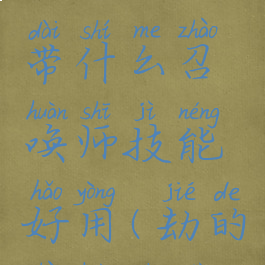 dài shí me zhào
带什么召
huàn shī jì néng
唤师技能
hǎo yòng jié de
好用(劫的